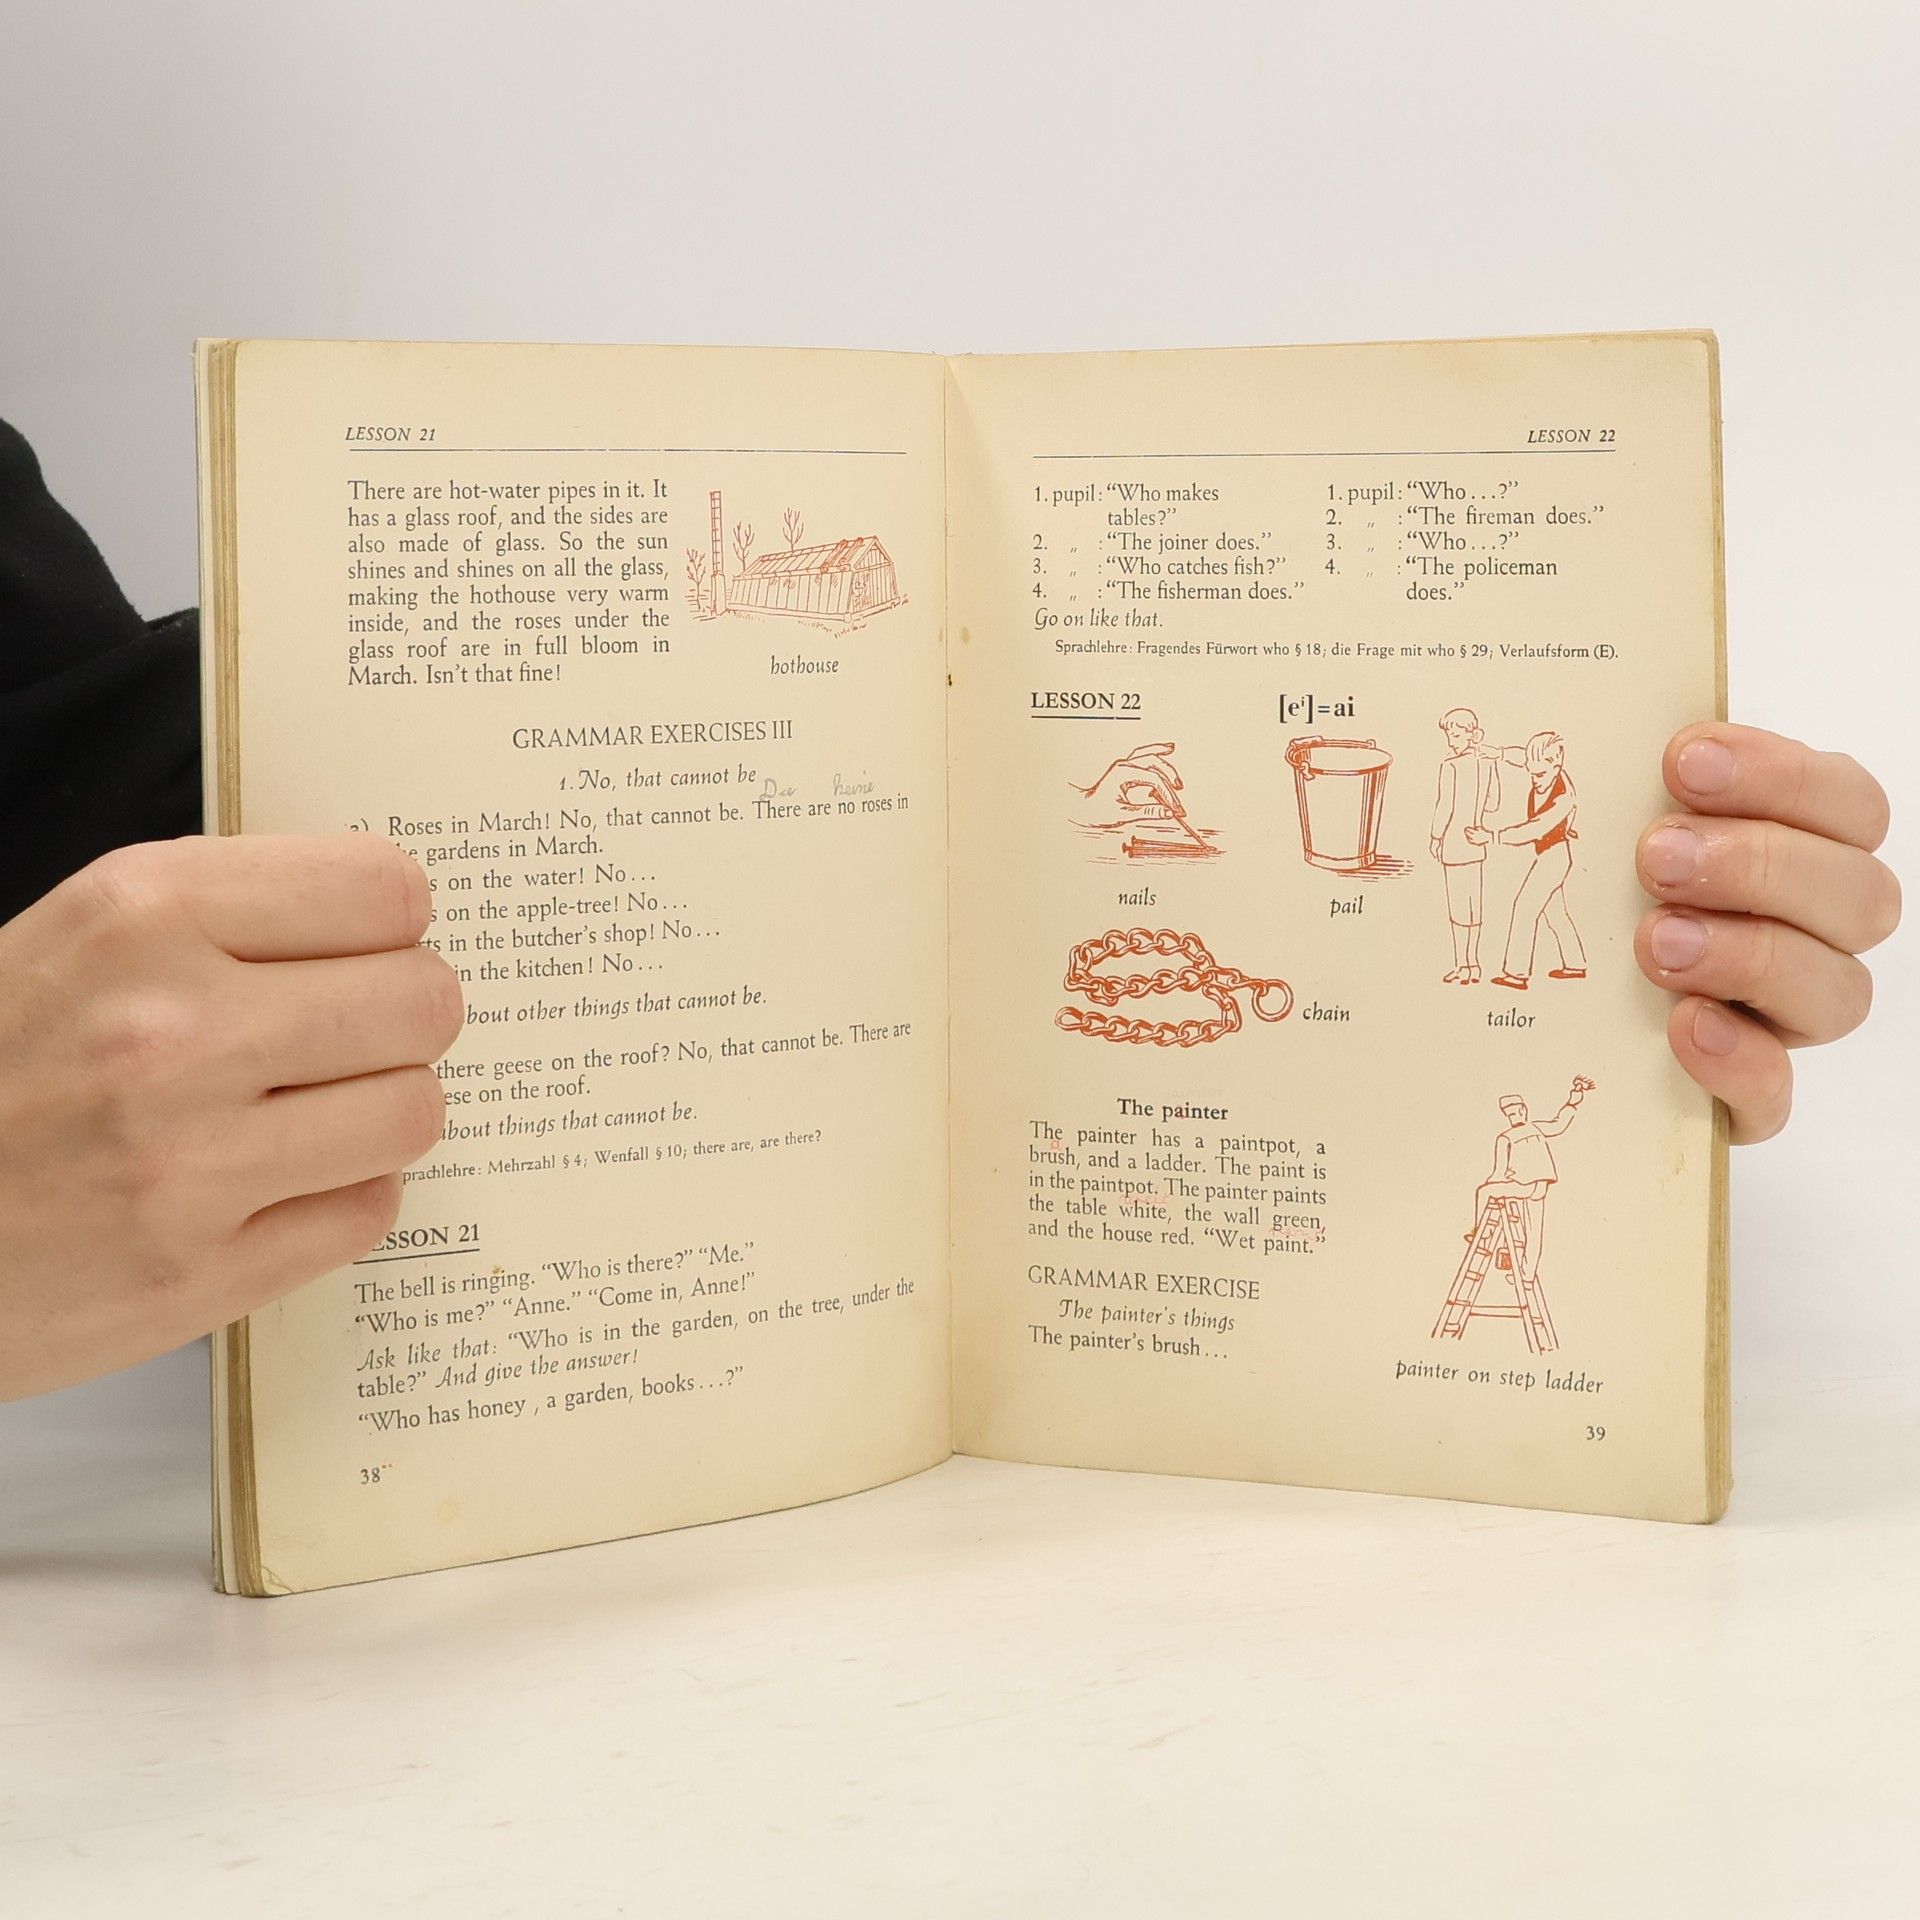 LESSON 21
There are hot-water pipes in it. It
has a glass roof, and the sides are
also made of glass. So the sun
shines and shines on all the glass,
making the hothouse very warm
inside, and the roses under the
glass roof are in full bloom in
March. Isn't that fine!
hothouse
GRAMMAR EXERCISES III
1. No, that cannot be
keine
Roses in March! No, that cannot be. There are no roses in
gardens in March.
on the water! No...
on the apple-tree! No...
in the butcher's shop! No...
in the kitchen! No...
about other things that cannot be.
there geese on the roof? No, that cannot be. There are
on the roof.
about things that cannot be.
Sprachlehre: Mehrzahl § 4; Wenfall § 10; there are, are there?
LESSON 21
The bell is ringing. “Who is there?” “Me.”
“Who is me?” “Anne.” “Come in, Anne!”
Ask like that: “Who is in the garden, on the tree, under the
table?” And give the answer!
“Who has honey , a garden, books...?”
38
LESSON 22
1. pupil: “Who makes
tables?”
2. „ : “The joiner does.”
3. „ : “Who catches fish?”
4. „ : “The fisherman does.”
1. pupil: “Who...?”
2. „ : “The fireman does.”
3. „ : “Who...?”
4. „ : “The policeman
does.”
Go on like that.
Sprachlehre: Fragendes Fürwort who § 18; die Frage mit who § 29; Verlaufsform (E).
LESSON 22
[eⁱ]=ai
nails
pail
chain
tailor
The painter
The painter has a paintpot, a
brush, and a ladder. The paint is
in the paintpot. The painter paints
the table white, the wall green,
and the house red. “Wet paint.”
GRAMMAR EXERCISE
The painter's things
The painter's brush...
painter on step ladder
39